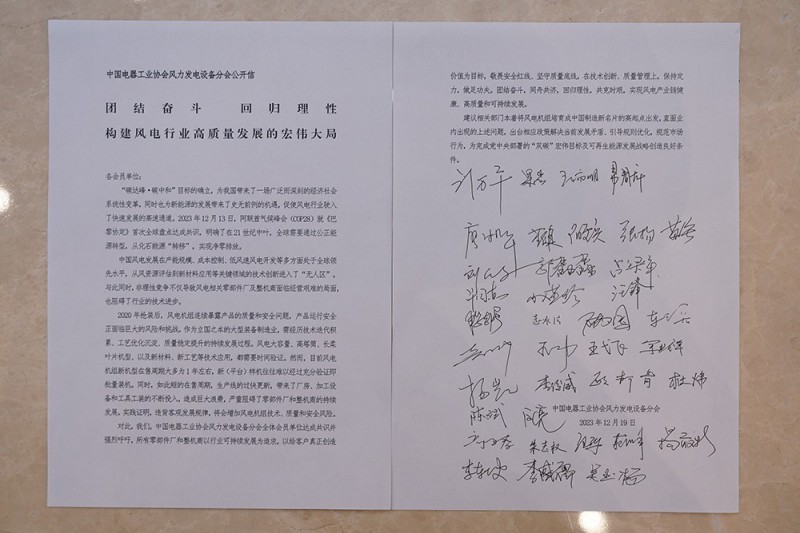 中国电器工业协会风力发电设备分会公开信
团结奋斗 回归理性
构建风电行业高质量发展的宏伟大局
各会员单位：
“碳达峰·碳中和”目标的确立，为我国带来了一场广泛而深刻的经济社会
系统性变革，同时也为新能源的发展带来了史无前例的机遇，促使风电行业驶入
了快速发展的高速通道。2023 年 12 月 13 日，阿联酋气候峰会（COP28）就《巴
黎协定》首次全球盘点达成共识，明确了在 21 世纪中叶，全球需要通过公正能
源转型，从化石能源“转移”，实现净零排放。
中国风电发展在产能规模、成本控制、低风速风电开发等多方面处于全球领
先水平，从风资源评估到新材料应用等关键领域的技术创新进入了“无人区”。
与此同时，非理性竞争不仅导致风电相关零部件厂及整机商面临经营艰难的局面，
也阻碍了行业的技术进步。
2020 年抢装后，风电机组连续暴露产品的质量和安全问题，产品运行安全
正面临巨大的风险和挑战。作为立国之本的大型装备制造业，需经历技术迭代积
累、工艺优化沉淀、质量稳定提升的持续发展过程。风电大容量、高塔筒、长柔
叶片机型、以及新材料、新工艺等技术应用，都需要时间验证。然而，目前风电
机组新机型在售周期大多为 1 年左右，新（平台）样机往往难以经过充分验证即
批量装机。同时，如此短的在售周期，生产线的过快更新，带来了厂房、加工设
备和工具工装的不断投入，造成巨大浪费，严重阻碍了零部件厂和整机商的持续
发展。实践证明，违背客观发展规律，将会增加风电机组技术、质量和安全风险。
对此，我们，中国电器工业协会风力发电设备分会全体会员单位达成共识并
强烈呼吁，所有零部件厂和整机商以行业可持续发展为追求，以给客户真正创造
价值为目标，敬畏安全红线、坚守质量底线。在技术创新、质量管理上，保持定
力，做足功夫。团结奋斗，同舟共济，回归理性，共克时艰，实现风电产业链健
康、高质量和可持续发展。
建议相关部门本着将风电机组培育成中国制造新名片的高起点出发，直面业
内出现的上述问题，出台相应政策解决当前发展矛盾、引导规则优化，规范市场
行为，为完成党中央部署的“双碳”宏伟目标及可再生能源发展战略创造良好条
件。
汪锋
杨凯 李俊威 杜炜
陈斌
中国电器工业协会风力发电设备分会
2023 年 12 月 19 日
朱志权